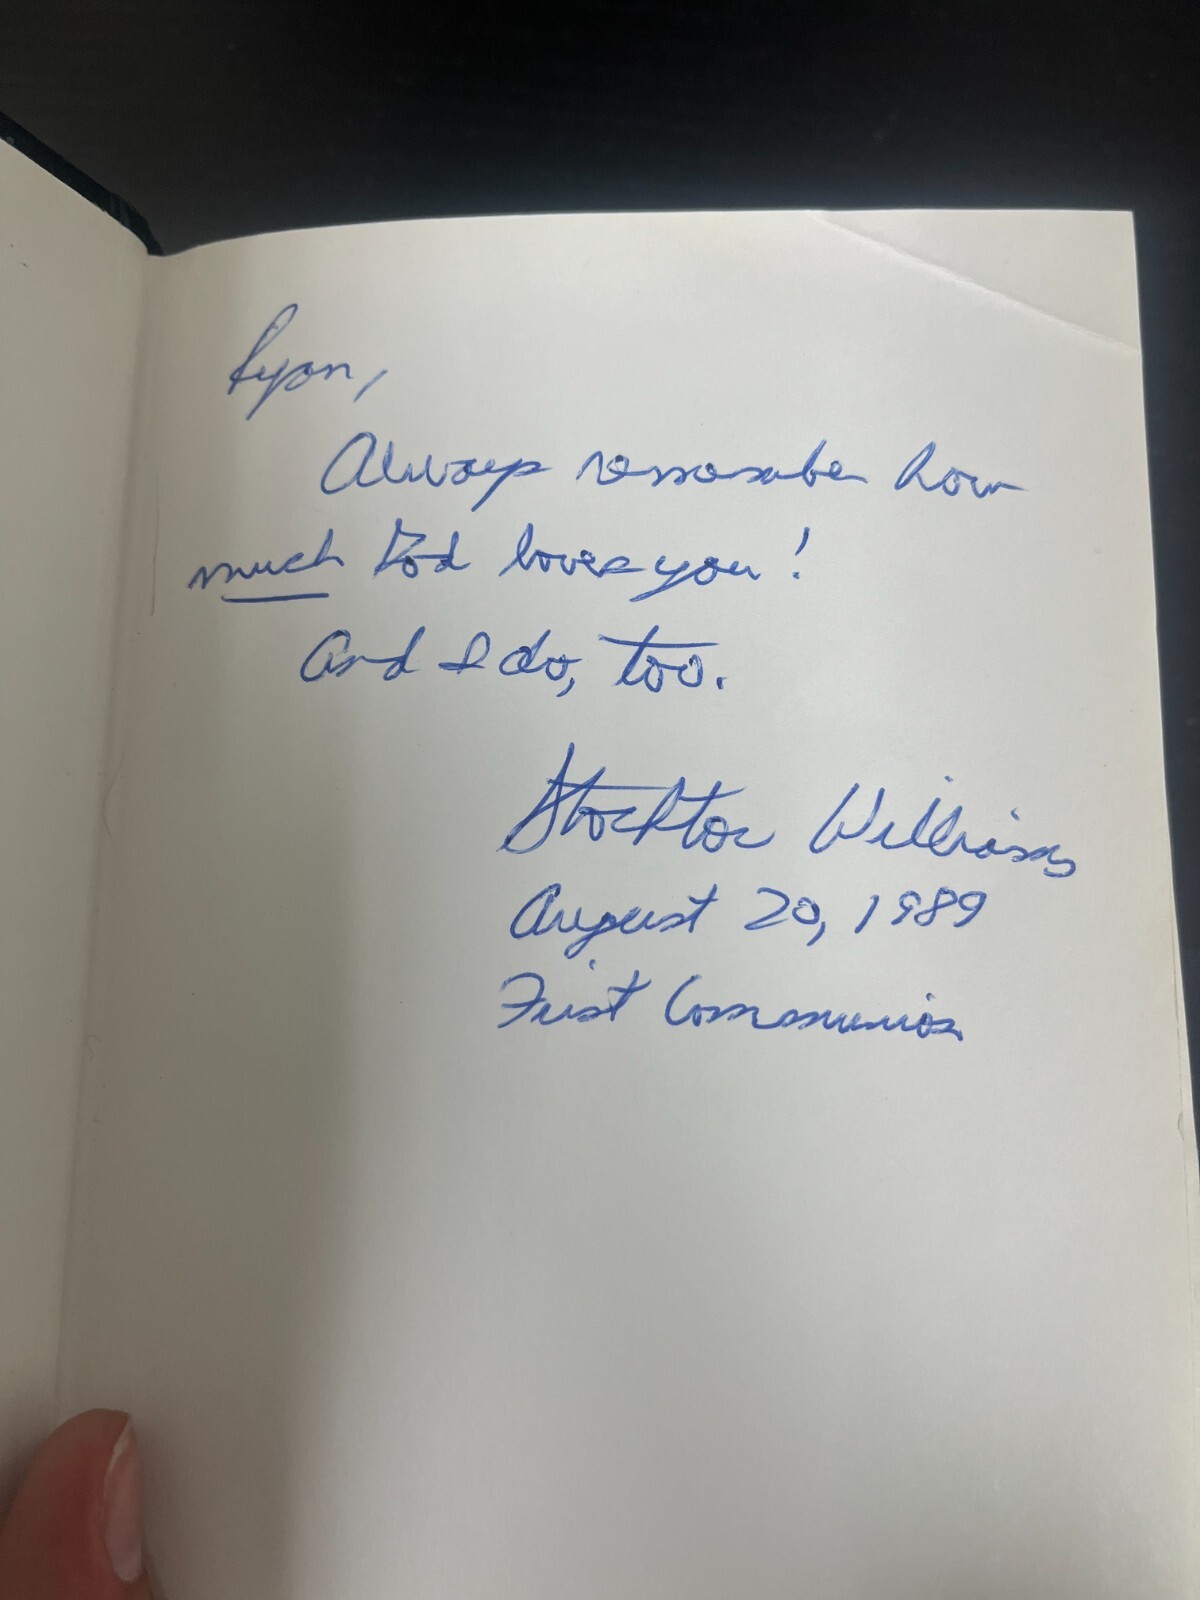 Ryan,
Always remember how
much God loves you!
And I do, too.
Stockton Williams
August 20, 1989
First Communion